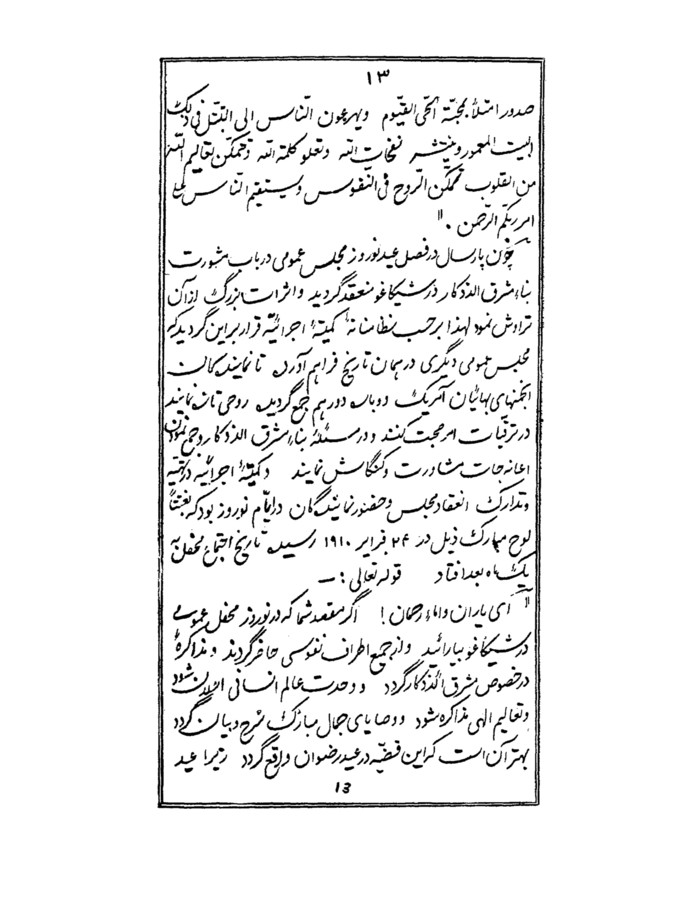 ١٣
صدور امتلأ بمحبّة الحیّ القیّوم ویهرعون النّاس الی التبتّل فی ذلک
البیت المعمور وینتشر نفحات الله وتعلو کلمة الله وتتمکّن تعالیم الله
من القلوب تمکّن الرّوح فی النّفوس ویستقیم النّاس علی
امر ربّکم الرّحمن ."
چون پارسال در فصل عید نوروز مجلس عمومی در باب مشورت
بناء مشرق الاذکار در شیکاغو منعقد گردید و اثرات بزرگ از آن
تراوش نمود لهذا برحسب نظامنامه کمیتهٔ اجرائیّه قرار براین گردید که
مجلس عمومی دیگری در همان تاریخ فراهم آرند تا نمایندگان
انجمنهای بهائیان آمریک دوباره دور هم جمع گردیده روحی تازه نمایند
در ترقّیات امر صحبت کنند و در مسئلهٔ بناء مشرق الاذکار و جمع نمودن
اعانه جات مشاورت وکنگاش نمایند وکمیتهٔ اجرائیّه در تهیّه
وتدارک انعقاد مجلس وحضور نمایندگان در ایّام نوروز بود که بغتتاً
لوح مبارک ذیل در ٢۴ فرایر ١٩١٠ رسیده تاریخ اجتماع محفل به
یک ماه بعد افتاد قوله تعالی :ــ
" ای یاران و اماء رحمان ! اگر مقصد شما که در نوروز محفل عمومی
در شیکاغو بیارائید و از جمیع اطراف نفوسی حاضر گردند و مذاکرهٔ
در خصوص مشرق الاذکار گردد و وحدت عالم انسانی اعلان شود
وتعالیم الهی مذاکره شود و وصایای جمال مبارک شرح و بیان گردد
بهتر آن است که این قضیّه در عید رضوان واقع گردد زیرا عید
13